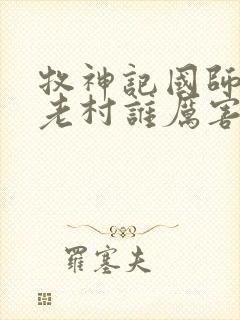 牧神記國師
老村誰厲害
羅塞夫